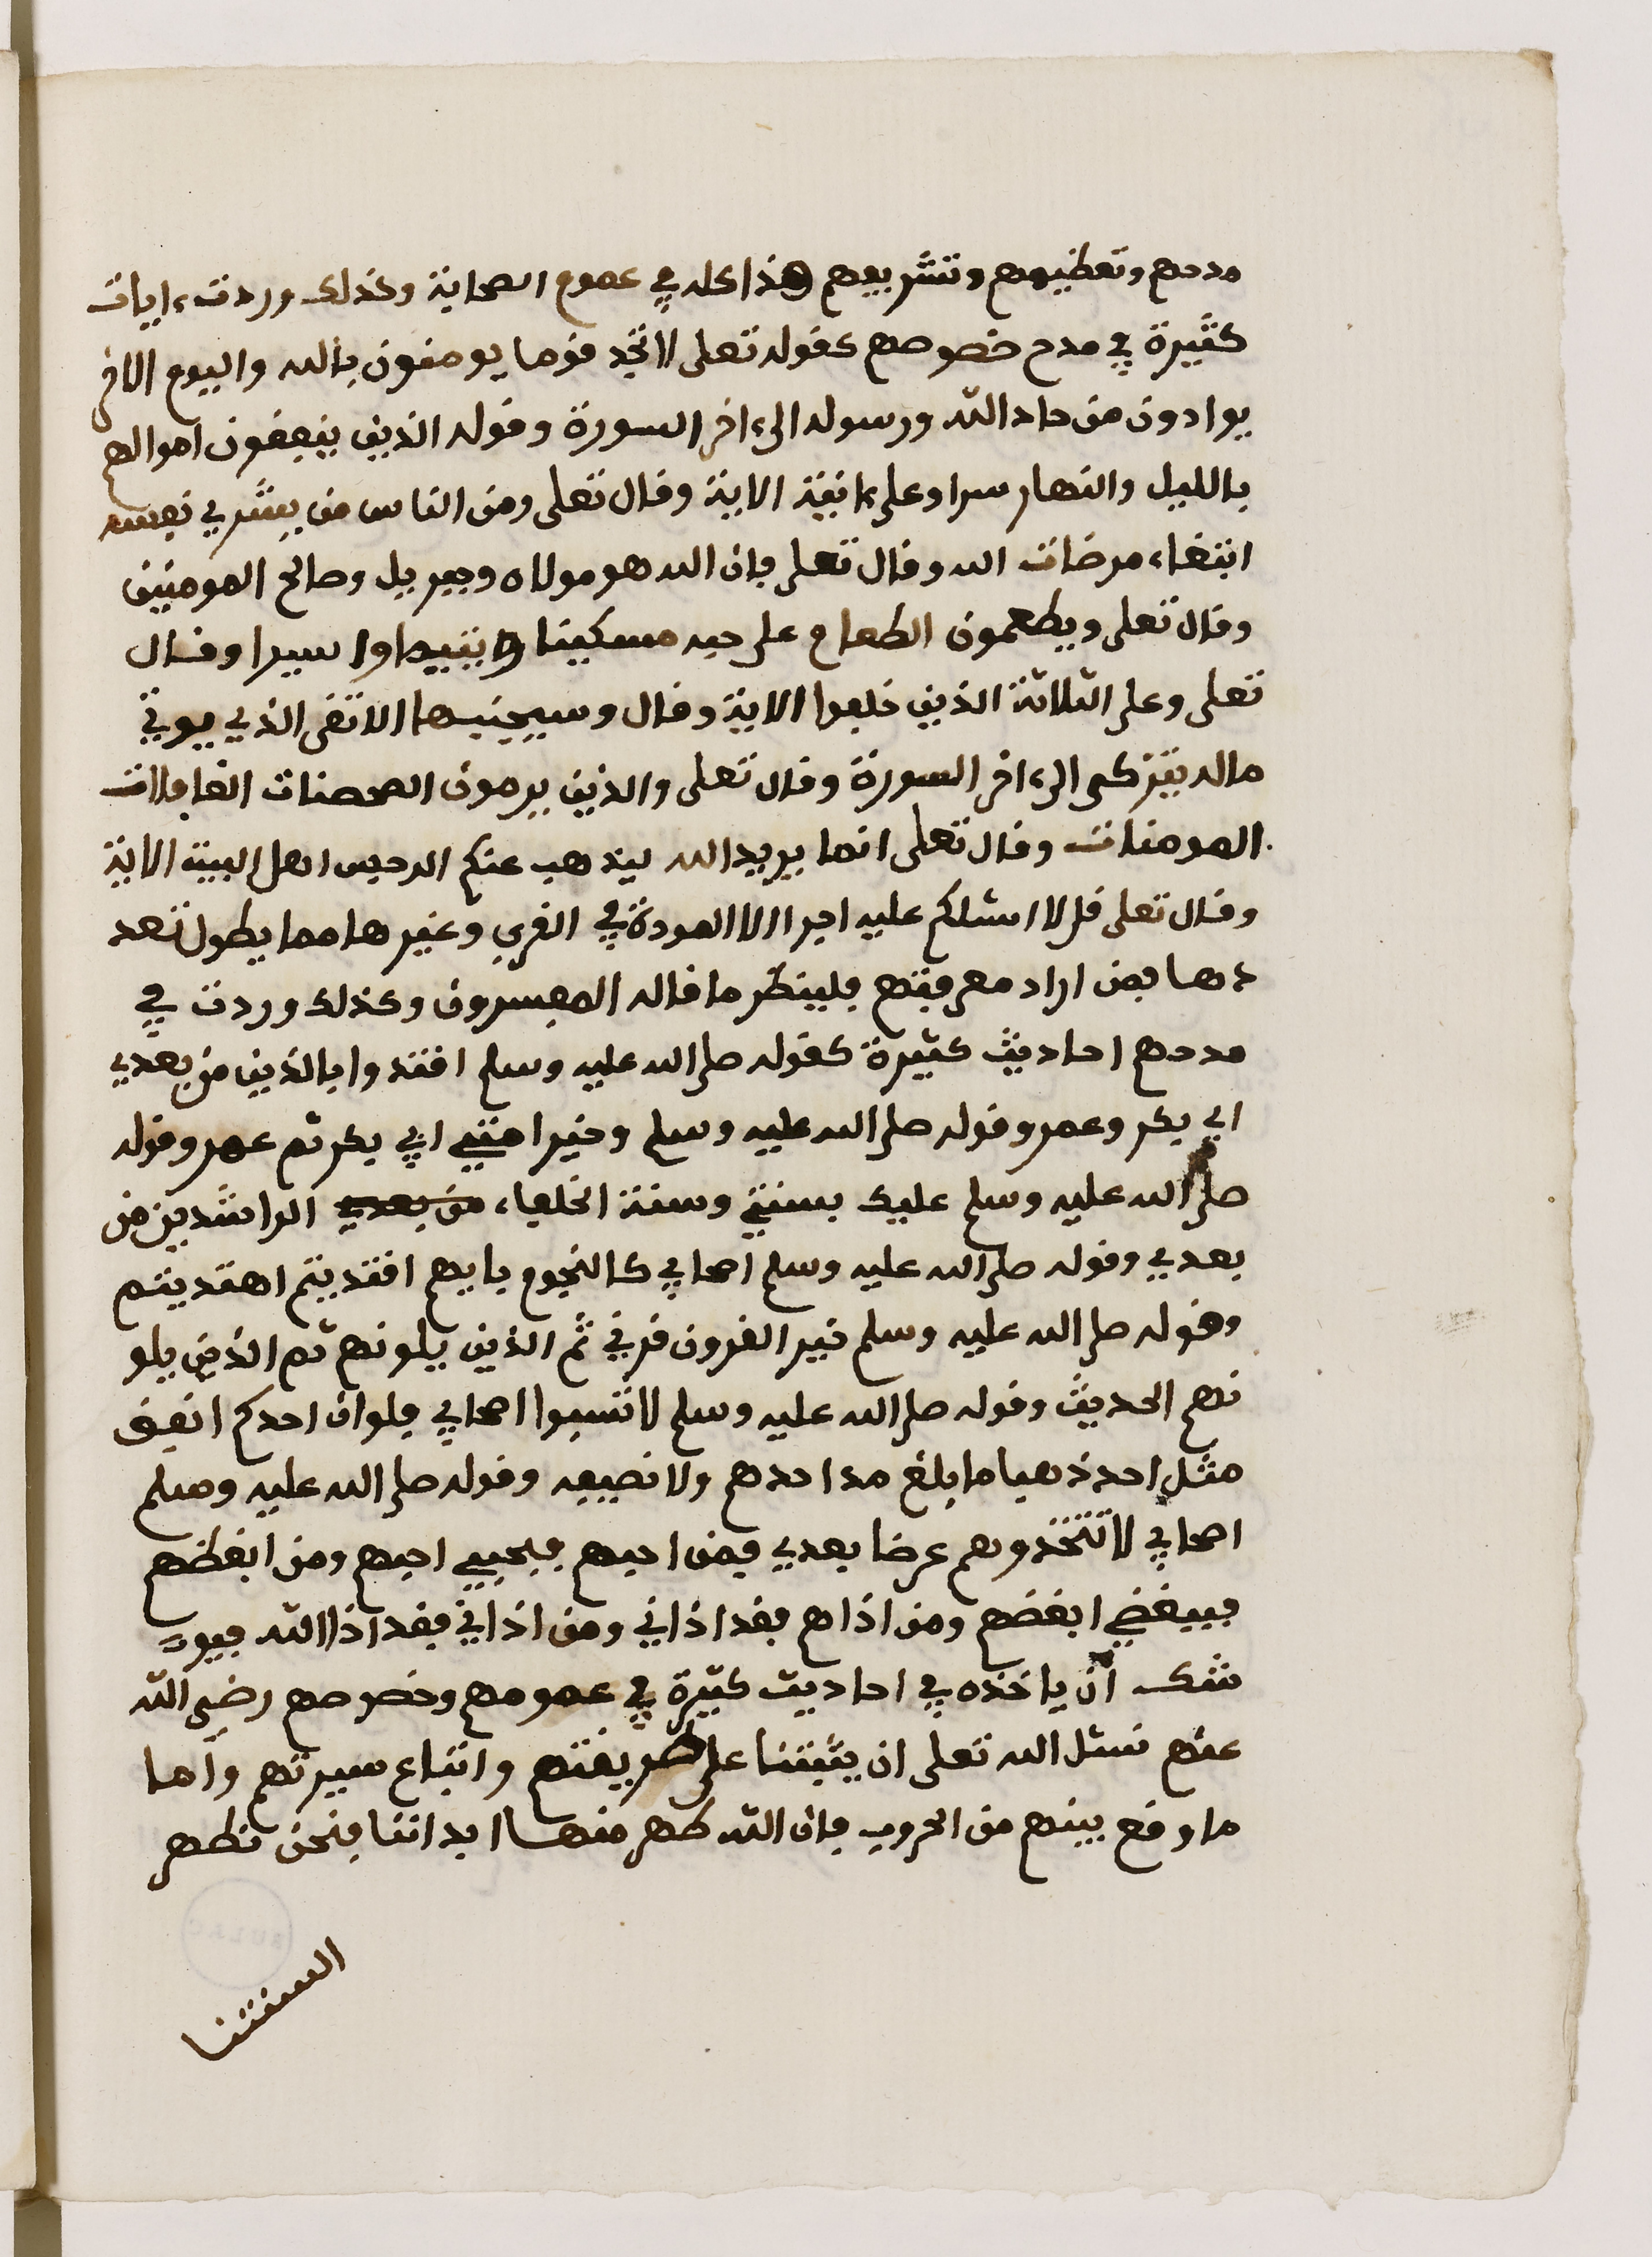 مدحهم وتعظيمهم وتشريفهم هذا كله في عموم الصحابة وكذلك وردت ءايات
كثيرة في مدح خصوصهم كقوله تعلى لا تجد قوما يومنون بالله واليوم الاخر
يوادون من حاد الله ورسوله الى ءاخر السورة وقوله الذين ينفقون اموالهم
بالليل والنهار سرا وعلانية الاية وقال تعلى ومن الناس من يشري نفسه
ابتغاء مرضات الله وقال تعلى فان الله هو مولاه وجبريل وصالح المومنين
وقال تعلى ويطعمون الطعام على حبه مسكينا ويتيما واسيرا وقال
تعلى وعلى الثلاثة الذين خلفوا الاية وقال وسيجنبها الاتقى الذي يوتي
ماله يتزكى الى ءاخر السورة وقال تعلى والذين يرمون المحصنات الغافلات
المومنات وقال تعلى انما يريد الله ليذهب عنكم الرجس اهل البيت الاية
وقال تعلى قل لا اسئلكم عليه اجرا الا المودة في القربى وغيرها مما يطول تعد
دها فمن اراد معرفتهم فلينظر ما قاله المفسرون وكذلك وردت في
مدحهم احاديث كثيرة كقوله صلى الله عليه وسلم اقتدوا بالذين من بعدي
ابي بكر وعمر وقوله صلى الله عليه وسلم وخير امتي ابي بكر ثم عمر وقوله
صلى الله عليه وسلم عليك بسنتي وسنة الخلفاء من بعدي الراشدين من
بعدي وقوله صلى الله عليه وسلم اصحابي كالنجوم بايهم اقتديتم اهتديتم
وقوله صلى الله عليه وسلم خير القرون قرني ثم الذين يلونهم ثم الذين يلو
نهم الحديث وقوله صلى الله عليه وسلم لا تسبوا اصحابي فلو ان احدكم انفق
مثل احد ذهبا ما بلغ مد احدهم ولا نصيفه وقوله صلى الله عليه وسلم
اصحابي لا تتخذوهم عرضا بعدي فمن احبهم فبحبي احبهم ومن ابغظهم
فببغضي ابغضهم ومن اذاهم فقد اذاني ومن اذاني فقد اذا الله فيو
شك ان ياخذه في احاديث كثيرة في عمومهم وخصوصهم رضي الله
عنهم نسئل الله تعلى ان يثبتنا على طريقتهم واتباع سيرتهم واما
ما وقع بينهم من الحروب فان الله طهر منها ابداننا فنحن نطهر
السنتنا